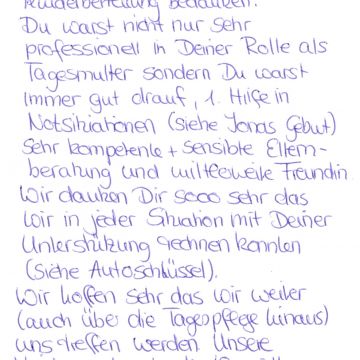 Kinderbetreuung bedanken.
Du warst nicht nur sehr
professionell in Deiner Rolle als
Tagesmutter sondern Du warst
immer gut drauf, 1. Hilfe in
Notsituationen (siehe Jonas Gebut)
Sehr kompetente + sensible Eltern-
beratung und mittlerweile Freundin.
Wir danken Dir sooo sehr das
wir in jeder Situation mit Deiner
Unterstützung rechnen konnten
(siehe Autoschlüssel).
Wir hoffen sehr das wir weiter
(auch über die Tagespflege hinaus)
uns treffen werden. Unsere